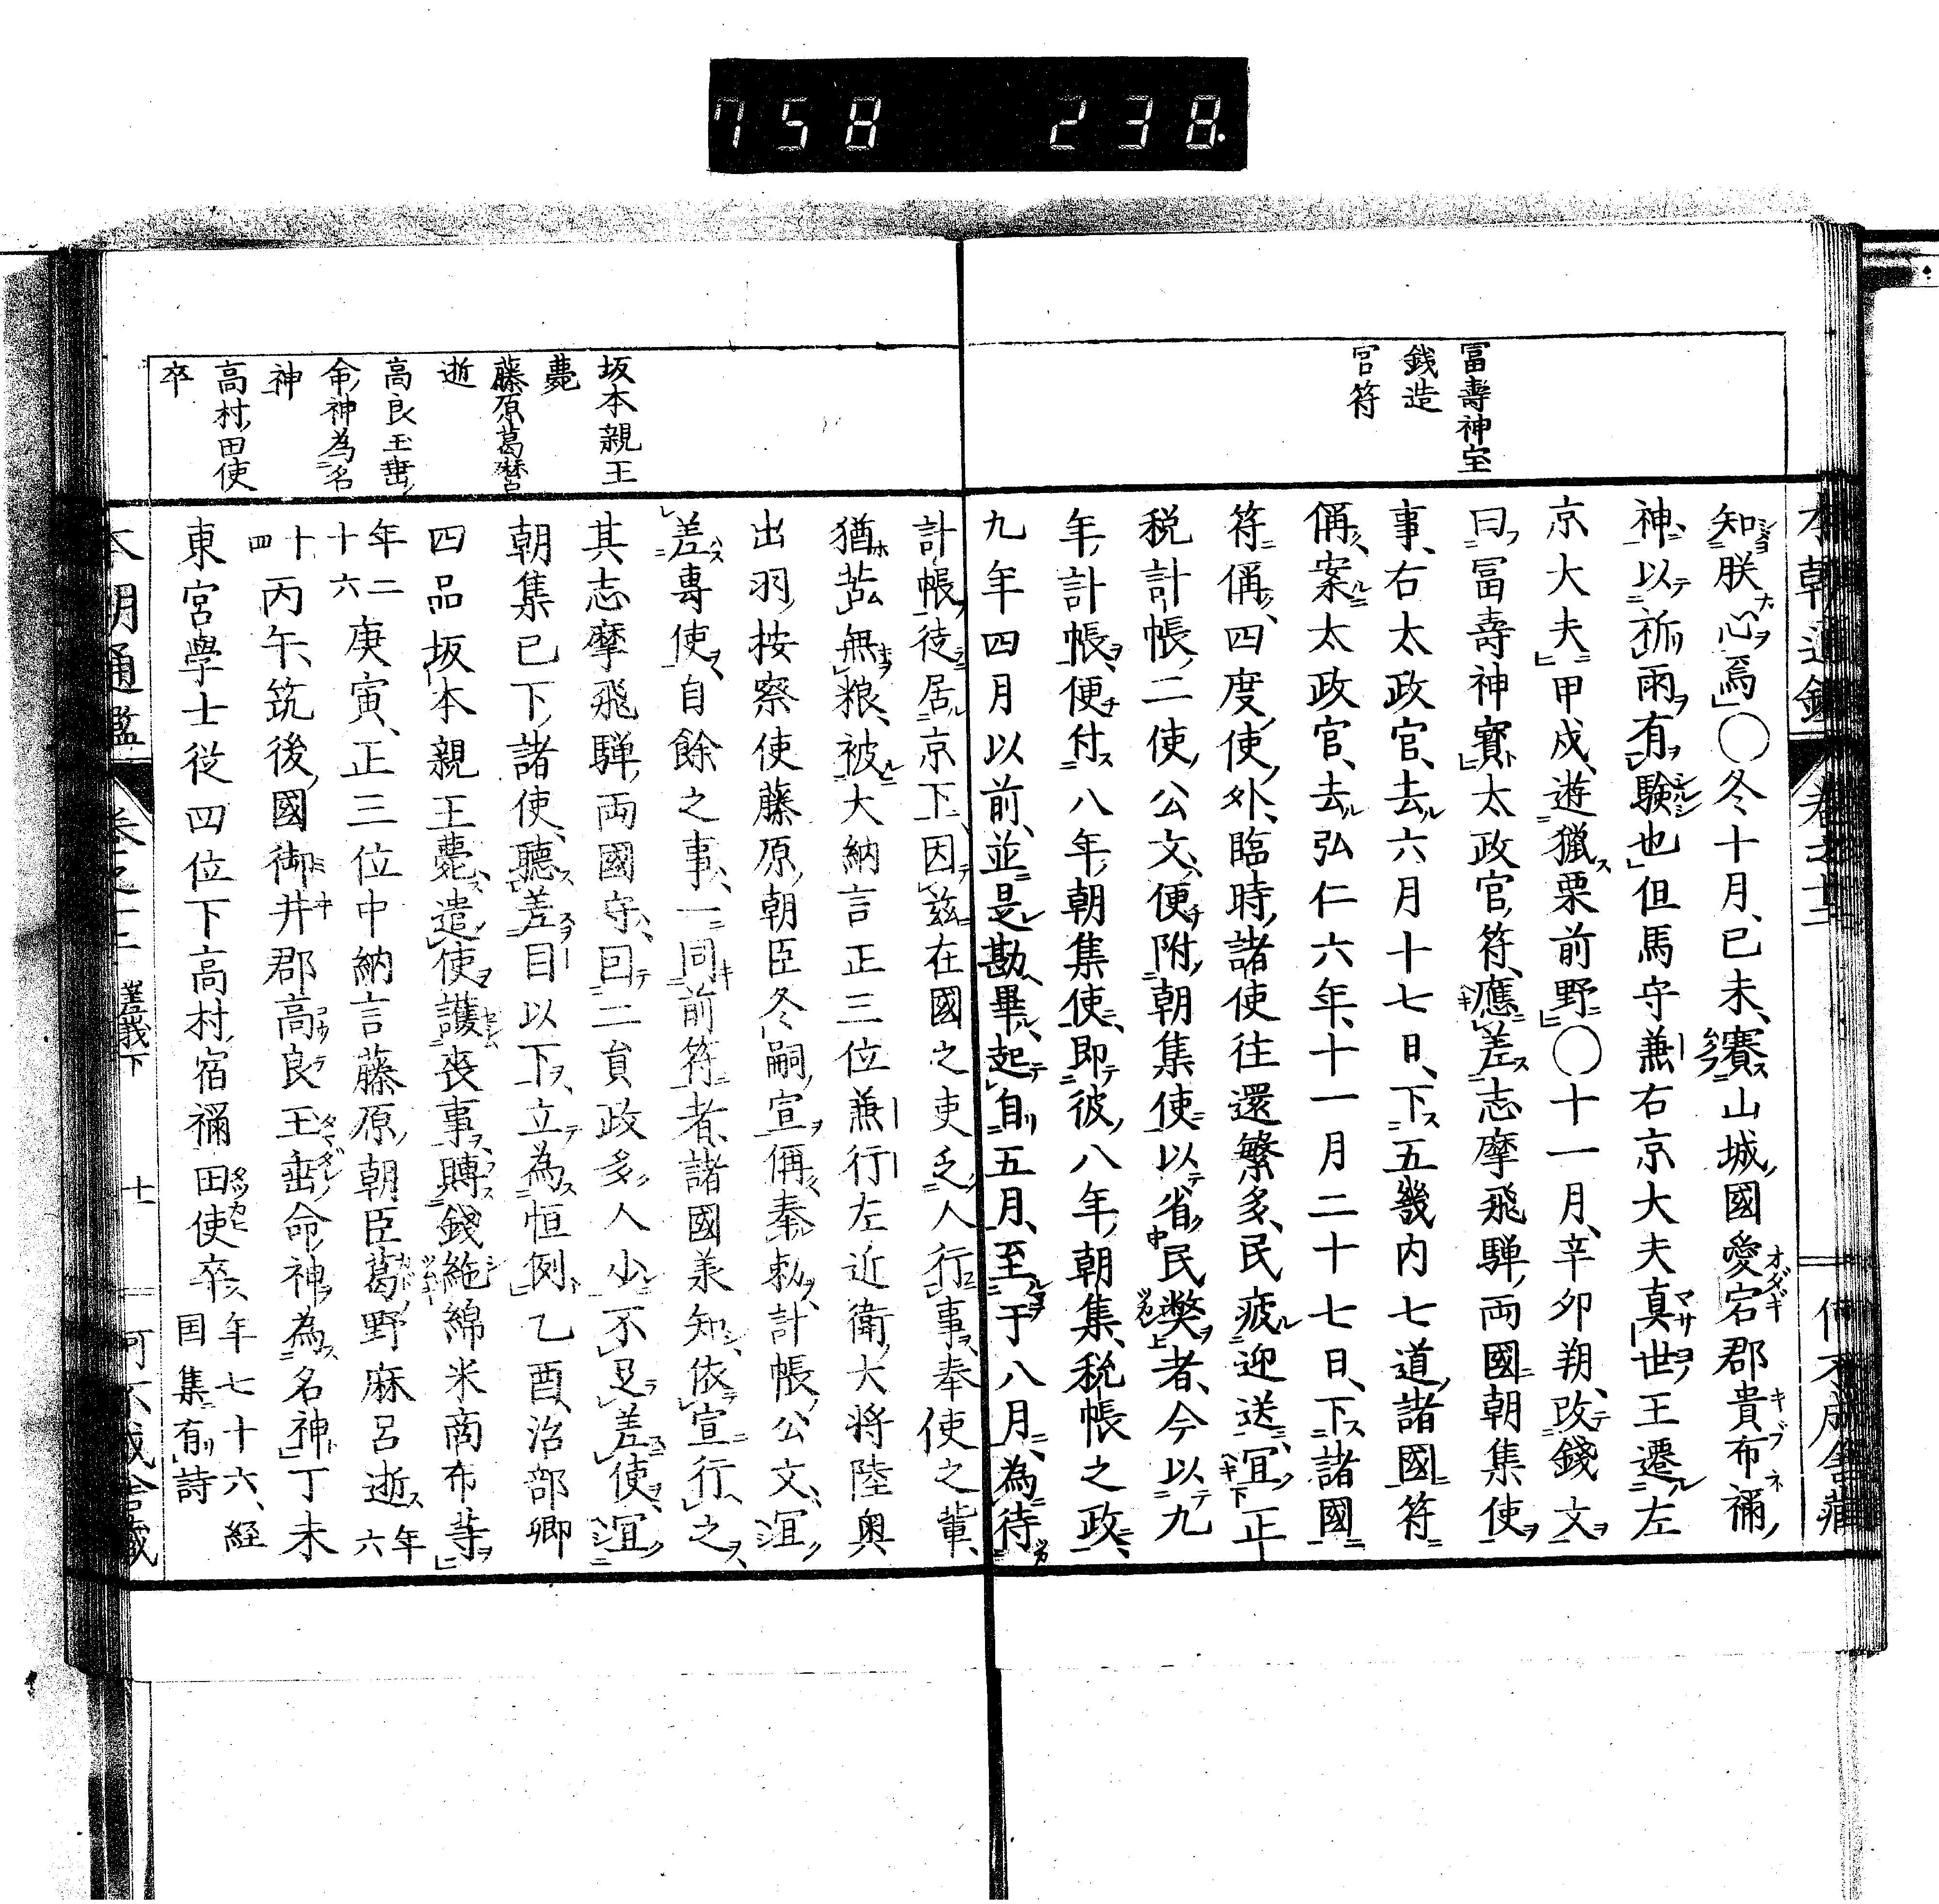 758 238.
冨壽神宝
銭造
官符
知朕心焉○冬十月、己未、賽山城國愛宕郡貴布禰、
神以祈雨有驗也但馬守兼右京大夫真世王遷左
京大夫甲戍、遊獵栗前野○十一月、辛卯朔、改錢文
曰冨壽神寶太政官符、應差志摩飛驒両國朝集使
事、右太政官、去六月十七日、下五畿内七道諸國符
偁、案太政官、去弘仁六年、十一月二十七日、下諸國
符偁、四度使外、臨時諸使往還繁多、民疲迎送、冝正
税計帳二使公文、便附朝集使以省民獘者、今以九
年計帳、便付八年朝集使、即彼八年朝集、税帳之政、
九年四月以前、並是勘畢、起自五月、至于八月、為待
計帳徒居京下、因茲在國之吏乏人行事、奉使之輩、
猶苦無粮、被大納言正三位兼行左近衛大将陸奥
出羽按察使藤原朝臣冬嗣宣偁奉勅、計帳公文、冝
差専使、自餘之事、一同前符者、諸國承知、依宣行之、
其志摩飛驒両國守、曰二負政多人少不足差使、冝
朝集已下諸使、聽差目以下、立為恒例乙酉、治部卿
四品坂本親王薨、遣使護喪事、賻錢絁綿米商布等
年二十六庚寅、正三位中納言藤原朝臣葛野麻呂逝年六
十四丙午、筑後國御井郡高良玉垂命神為名神丁未
東宮學士従四位下高村宿禰田使卒年七十六、経国集有詩
坂本親王
薨
藤原葛野麿
逝
高良玉垂
命神為名
神
高村田使
卒
本朝通鑑 卷之十二 嵯峨下 十一